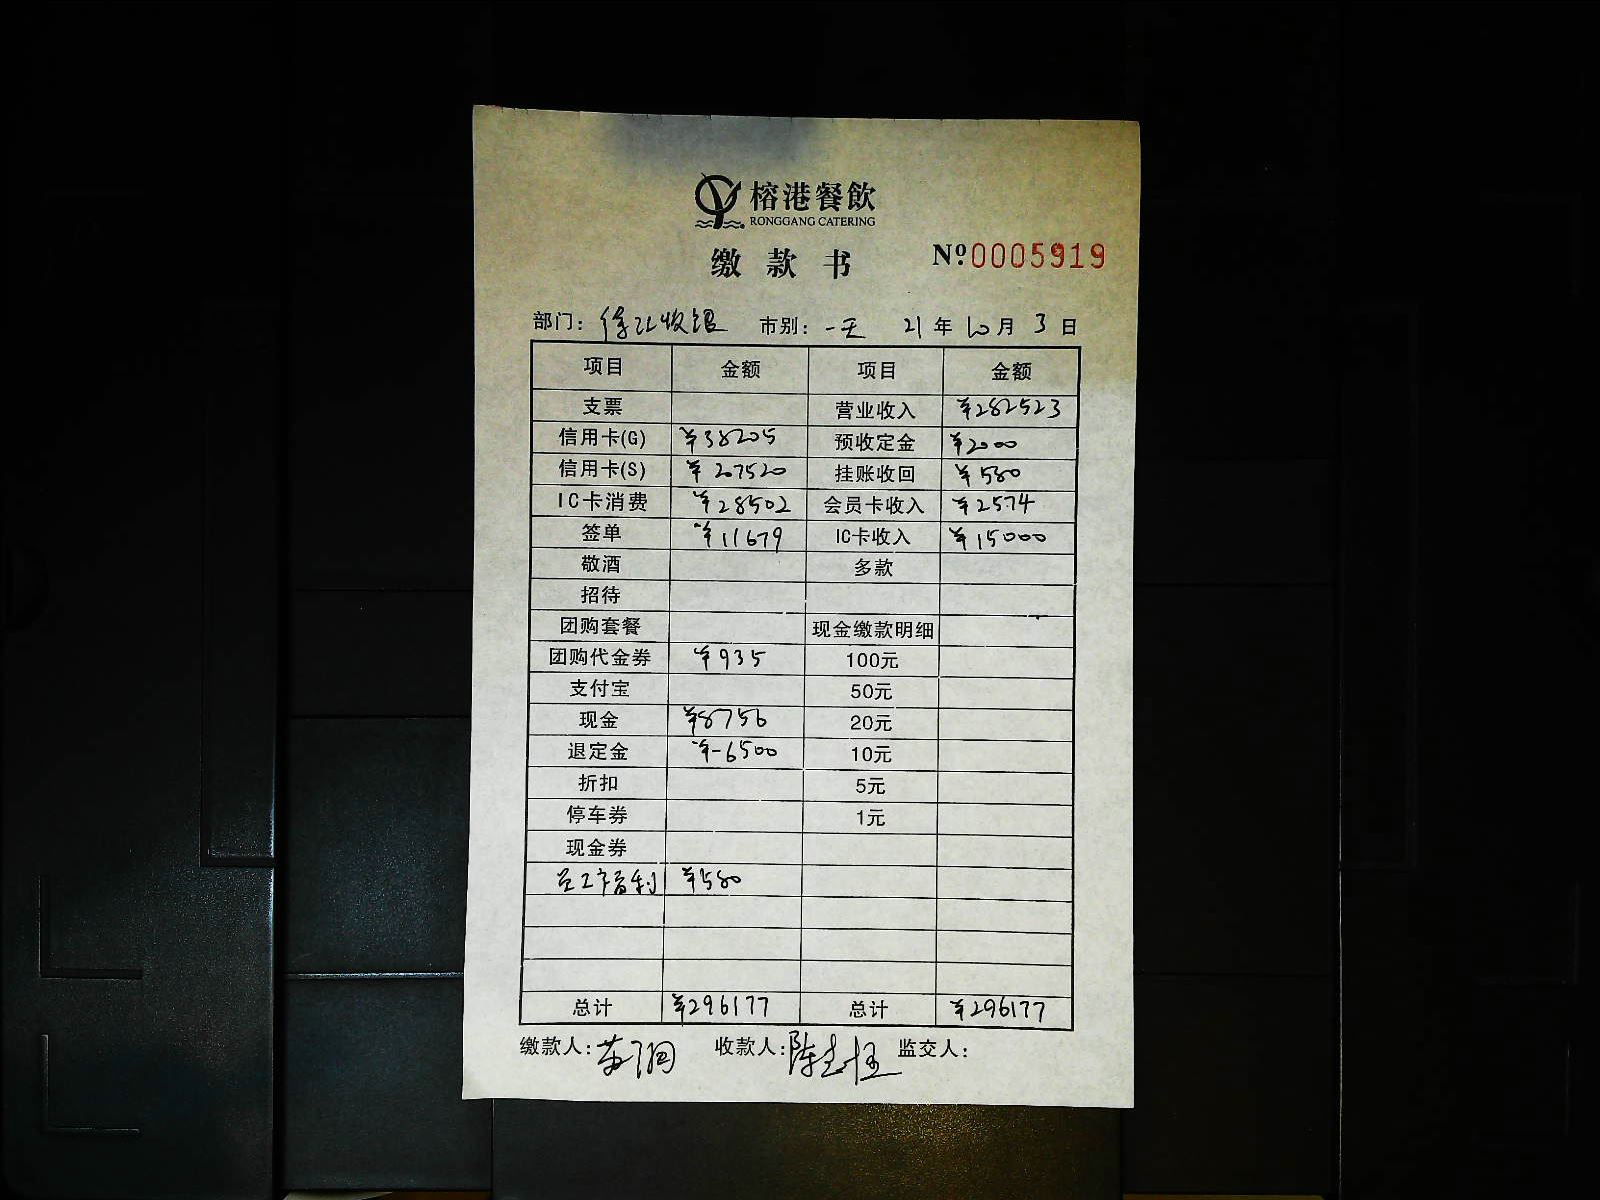 榕港餐飲
RONGGANG CATERING
缴款书 Nº0005919
部门: 徐汇收银 市别: 一天 21年10月3日
项目 金额 项目 金额
支票 营业收入 ¥282523
信用卡(G) ¥38205 预收定金 ¥2000
信用卡(S) ¥207520 挂账收回 ¥580
IC卡消费 ¥28502 会员卡收入 ¥2574
签单 ¥11679 IC卡收入 ¥15000
敬酒 多款
招待
团购套餐 现金缴款明细
团购代金券 ¥935 100元
支付宝 50元
现金 ¥8756 20元
退定金 ¥-6500 10元
折扣 5元
停车券 1元
现金券
员工福利 ¥580
总计 ¥296177 总计 ¥296177
缴款人: 收款人: 监交人: